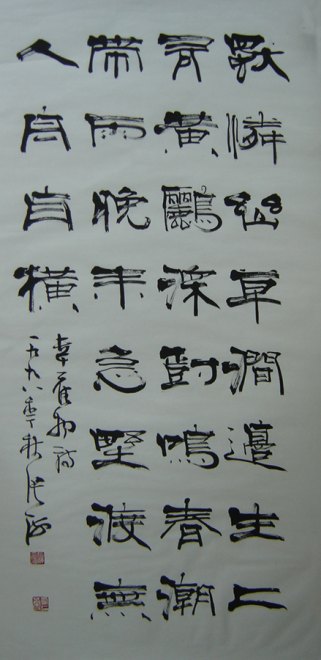 獨憐幽草澗邊生上
有黃鸝深樹鳴春潮
帶雨晚來急野渡無
人舟自橫
韋應物詩
張海